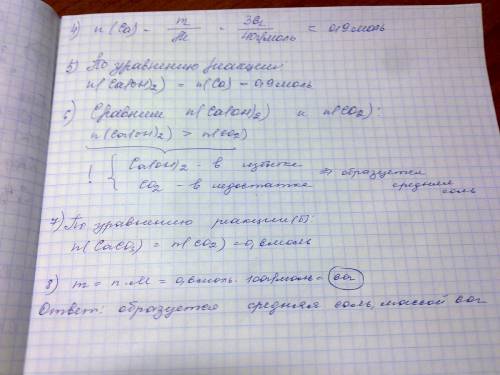 4) n(Ca) = m/M = 36г/40г/моль = 0,9моль
5) По уравнению реакции
n(Ca(OH)2) = n(Ca) = 0,9моль
6) Сравним n(Ca(OH)2) и n(CO2):
n(Ca(OH)2) > n(CO2)
! { Ca(OH)2 - в избытке
CO2 - в недостатке ⇒ образуется средняя соль
7) По уравнению реакции(б):
n(CaCO3) = n(CO2) = 0,6моль
8) m = n·M = 0,6моль·100г/моль = 60г
Ответ: образуется средняя соль, массой 60г